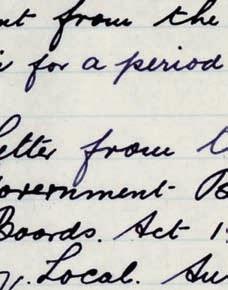 nt from the
for a period
letter from
Government B
Boards. Act 19
y. Local. Au